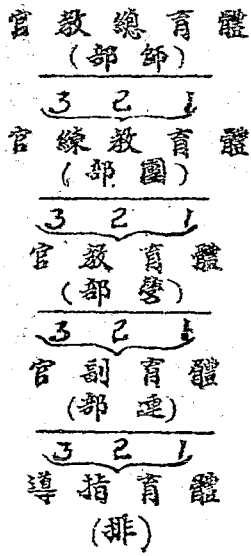 體育總教官
(師部)
1 2 3
體育教練官
(團部)
1 2 3
體育教官
(營部)
1 2 3
體育副官
(連部)
1 2 3
體育指導
(排)